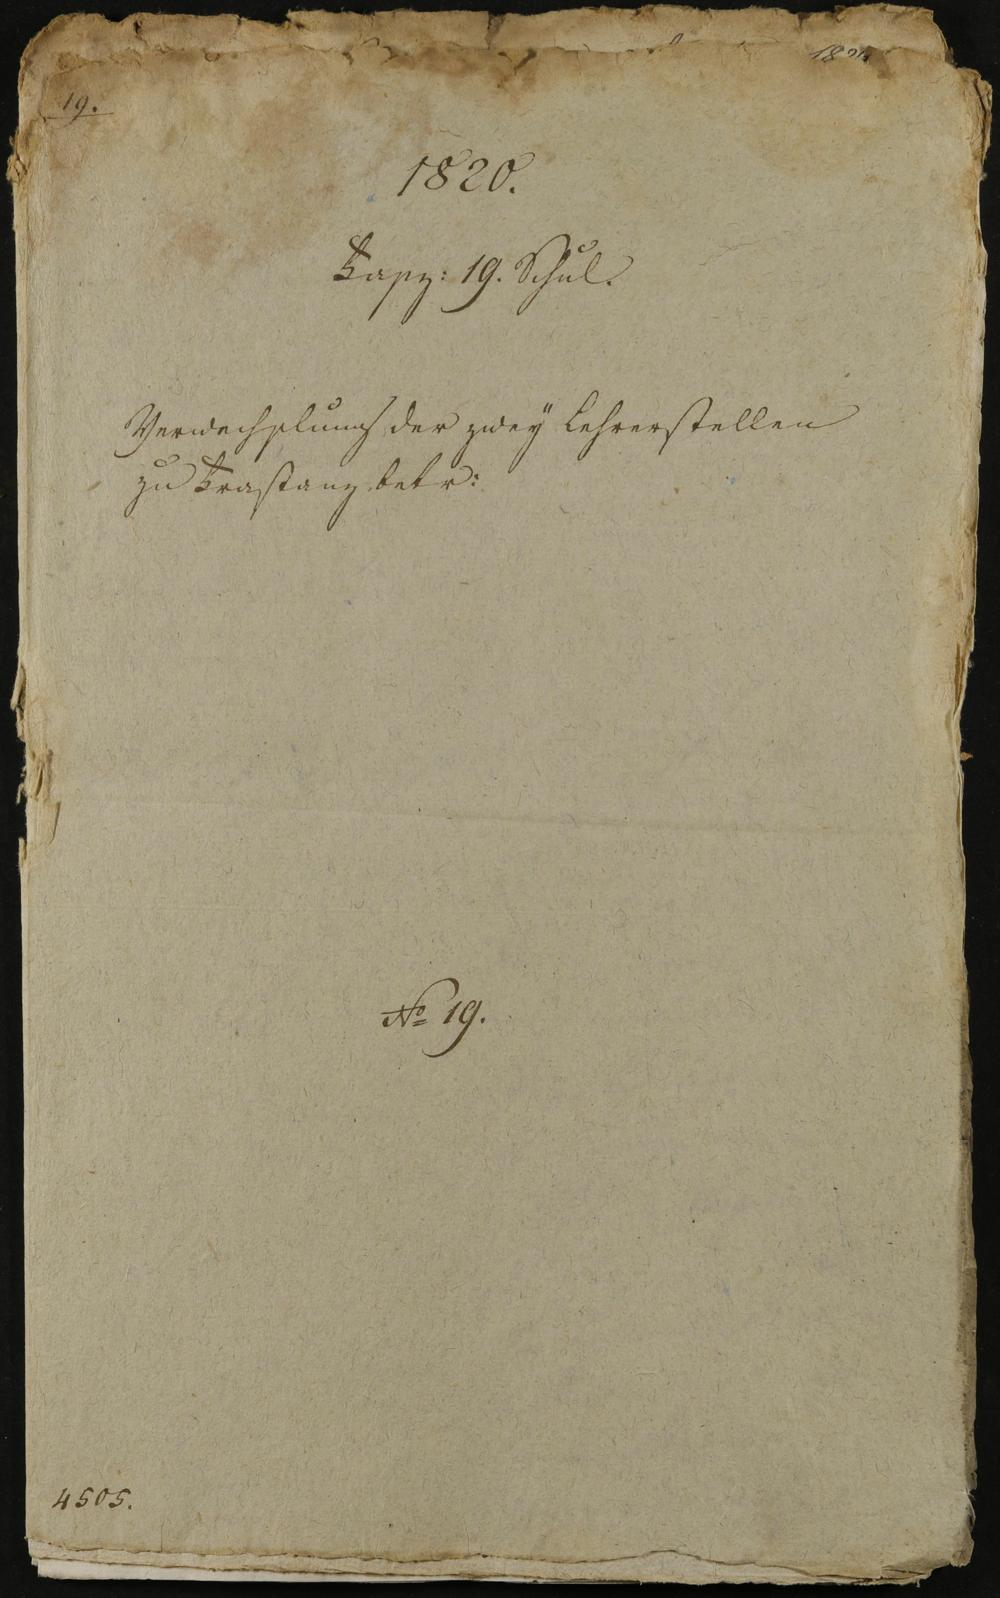 19.
1820.
Fasz: 19. Schul.
Verwechslung der zwey Lehrerstellen
zu Frastanz betr:
No 19.
4505.